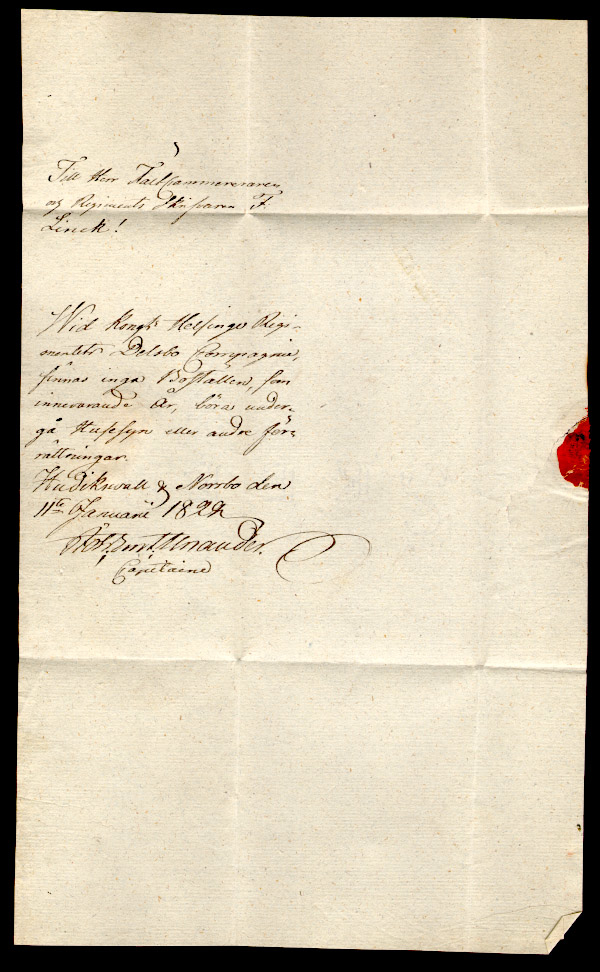 Till Herr Fält Cammereraren
och Regiments Skrifvaren F.
Linck!
Wid Kongl. Helsinge Regi-
mentets Delsbo Compagnie,
finnas inga Boställen, som
innevarande År, böra under-
gå Husesyn eller andre för-
rättningar.
Hudikswall & Norrbo den
11te Januarii 1822
Capitaine